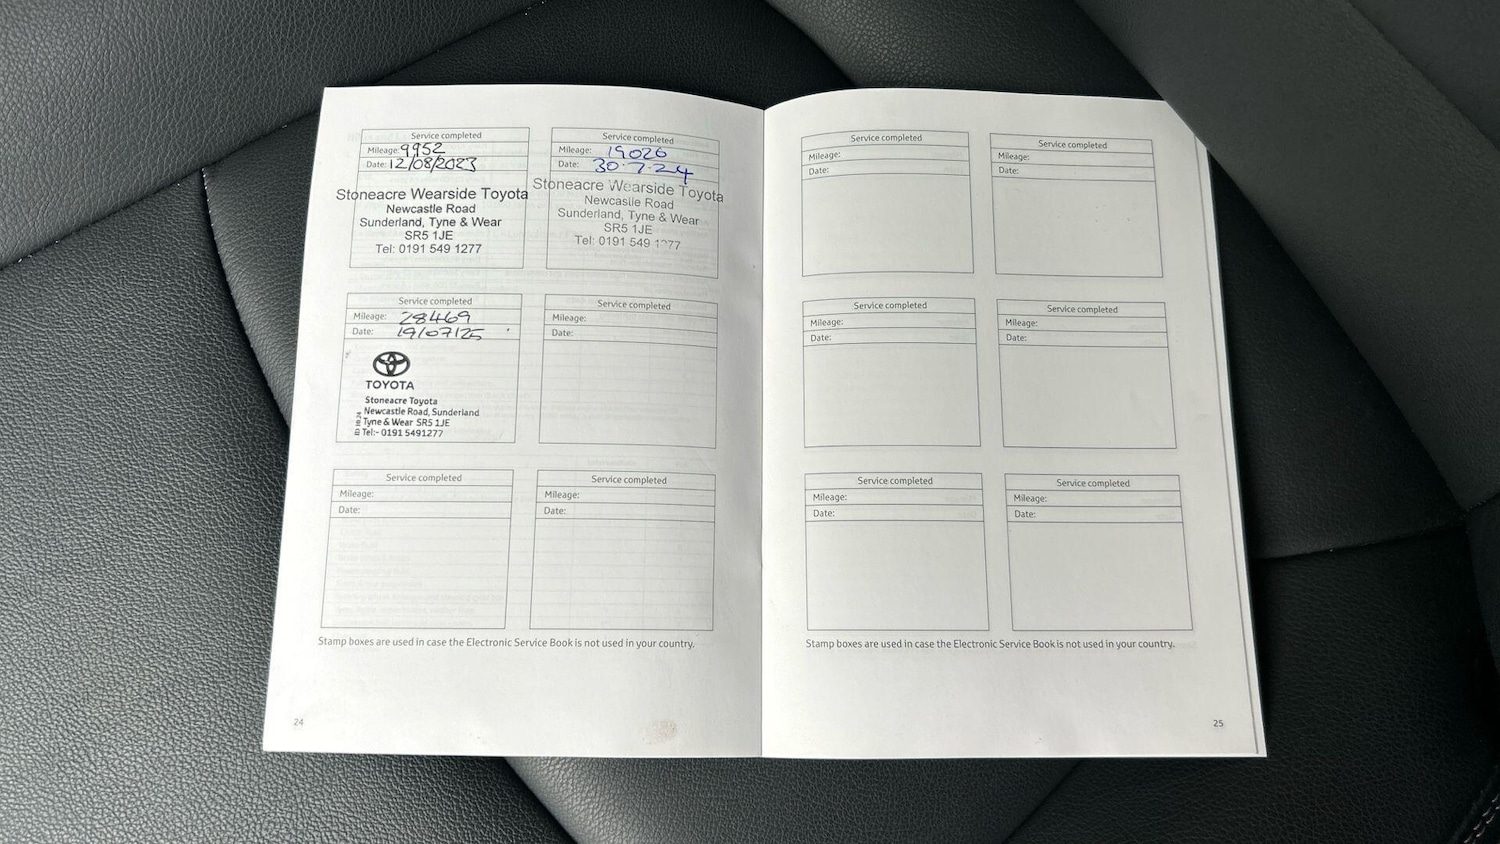 Service completed
Mileage: 9952
Date: 12/08/2023
Stoneacre Wearside Toyota
Newcastle Road
Sunderland, Tyne & Wear
SR5 1JE
Tel: 0191 549 1277
Service completed
Mileage: 19026
Date: 30.7.24
Stoneacre Wearside Toyota
Newcastle Road
Sunderland, Tyne & Wear
SR5 1JE
Tel: 0191 549 1277
Service completed
Mileage: 28469
Date: 19/07/25
TOYOTA
Stoneacre Toyota
Newcastle Road, Sunderland
Tyne & Wear SR5 1JE
Tel:- 0191 5491277
Service completed
Mileage:
Date:
Service completed
Mileage:
Date:
Service completed
Mileage:
Date:
Stamp boxes are used in case the Electronic Service Book is not used in your country.
24
Service completed
Mileage:
Date:
Service completed
Mileage:
Date:
Service completed
Mileage:
Date:
Service completed
Mileage:
Date:
Service completed
Mileage:
Date:
Service completed
Mileage:
Date:
Stamp boxes are used in case the Electronic Service Book is not used in your country.
25